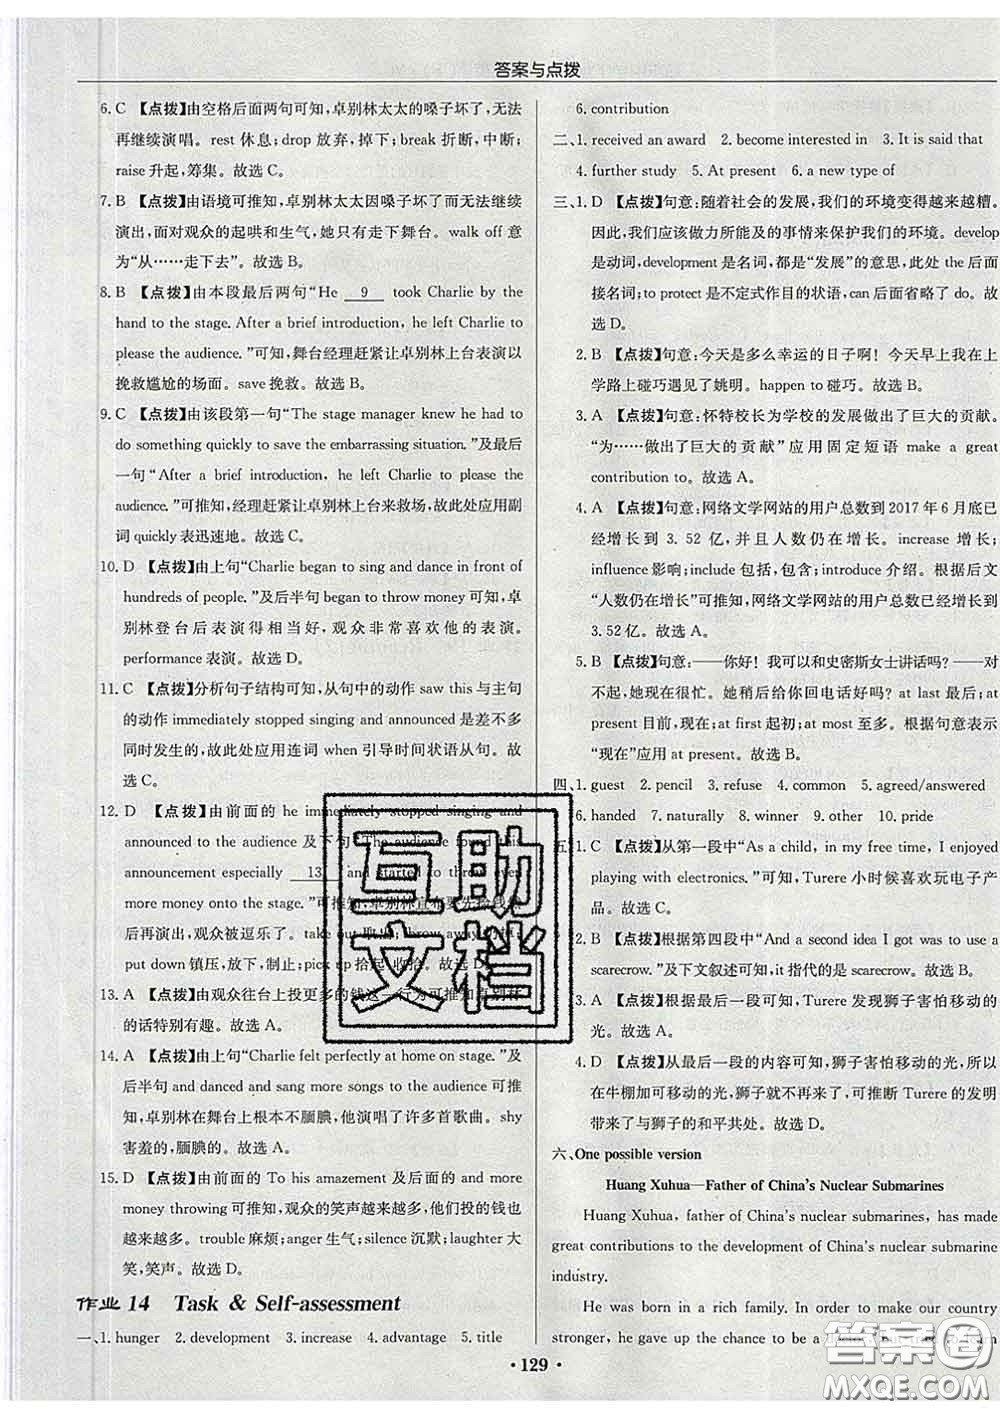 答案与点拨
6. C 【点拨】由空格后面两句可知，卓别林太太的嗓子坏了，无法
再继续演唱。rest 休息；drop 放弃，掉下；break 折断，中断；
raise 升起，筹集。故选 C。
7. B 【点拨】由语境可推知，卓别林太太因嗓子坏了而无法继续
演出，面对观众的起哄和生气，她只有走下舞台。walk off 意
为“从……走下去”。故选 B。
8. B 【点拨】由本段最后两句“He 9 took Charlie by the
hand to the stage. After a brief introduction, he left Charlie to
please the audience.”可知，舞台经理赶紧让卓别林上台表演以
挽救尴尬的场面。save 挽救。故选 B。
9. C 【点拨】由该段第一句“The stage manager knew he had to
do something quickly to save the embarrassing situation.”及最后
一句“After a brief introduction, he left Charlie to please the
audience.”可推知，经理赶紧让卓别林上台来救场，故此处应用副
词 quickly 表迅速地。故选 C。
10. D 【点拨】由上句“Charlie began to sing and dance in front of
hundreds of people.”及后半句 began to throw money 可知，卓
别林登台后表演得相当好，观众非常喜欢他的表演。
performance 表演。故选 D。
11. C 【点拨】分析句子结构可知，从句中的动作 saw this 与主句
的动作 immediately stopped singing and announced 是差不多
同时发生的，故此处应用连词 when 引导时间状语从句。故
选 C。
12. D 【点拨】由前面的 he immediately stopped singing and
announced to the audience 及下句“The audience found this
announcement especially 13 and started to throw even
more money onto the stage.”可推知，卓别林宣布要先捡钱然
后再演出，观众被逗乐了。take out 取出；throw away 扔掉；
put down 镇压，放下，制止；pick up 拾起，收拾。故选 D。
13. A 【点拨】由观众往台上投更多的钱这一行为可推知卓别林
的话特别有趣。故选 A。
14. A 【点拨】由上句“Charlie felt perfectly at home on stage.”及
后半句 and danced and sang more songs to the audience 可推
知，卓别林在舞台上根本不腼腆，他演唱了许多首歌曲。shy
害羞的，腼腆的。故选 A。
15. D 【点拨】由前面的 To his amazement 及后面的 and more
money throwing 可推知，观众的笑声越来越多，他们投的钱也
越来越多。trouble 麻烦；anger 生气；silence 沉默；laughter 大
笑，笑声。故选 D。
作业 14 Task & Self-assessment
一、1. hunger 2. development 3. increase 4. advantage 5. title
6. contribution
二、1. received an award 2. become interested in 3. It is said that
4. further study 5. At present 6. a new type of
三、1. D 【点拨】句意：随着社会的发展，我们的环境变得越来越糟。
因此，我们应该做力所能及的事情来保护我们的环境。develop
是动词，development 是名词，都是“发展”的意思，此处 the 后面
接名词；to protect 是不定式作目的状语，can 后面省略了 do。故
选 D。
2. B 【点拨】句意：今天是多么幸运的日子啊！今天早上我在上
学路上碰巧遇见了姚明。happen to 碰巧。故选 B。
3. A 【点拨】句意：怀特校长为学校的发展做出了巨大的贡献。
“为……做出了巨大的贡献”应用固定短语 make a great
contribution to。故选 A。
4. A 【点拨】句意：网络文学网站的用户总数到 2017 年 6 月底已
经增长到 3. 52 亿，并且人数仍在增长。increase 增长；
influence 影响；include 包括，包含；introduce 介绍。根据后文
“人数仍在增长”可推知，网络文学网站的用户总数已经增长到
3. 52 亿。故选 A。
5. B 【点拨】句意：——你好！我可以和史密斯女士讲话吗？——对
不起，她现在很忙。她稍后给你回电话好吗？at last 最后；at
present 目前，现在；at first 起初；at most 至多。根据句意表示
“现在”应用 at present。故选 B。
四、1. guest 2. pencil 3. refuse 4. common 5. agreed/answered
6. handed 7. naturally 8. winner 9. other 10. pride
五、1. C 【点拨】从第一段中“As a child, in my free time, I enjoyed
playing with electronics.”可知，Turere 小时候喜欢玩电子产
品。故选 C。
2. B 【点拨】根据第四段中“And a second idea I got was to use a
scarecrow.”及下文叙述可知，it 指代的是 scarecrow。故选 B。
3. A 【点拨】根据最后一段可知，Turere 发现狮子害怕移动的
光。故选 A。
4. D 【点拨】从最后一段的内容可知，狮子害怕移动的光，所以
在牛棚加可移动的光，狮子就不再来。可推断 Turere 的发明
带来了与狮子的和平共处。故选 D。
六、One possible version
Huang Xuhua—Father of China's Nuclear Submarines
Huang Xuhua, father of China's nuclear submarines, has made
great contributions to the development of China's nuclear submarine
industry.
He was born in a rich family. In order to make our country
stronger, he gave up the chance to be a
• 129 •
互助
文档
答案圈
MXQE.COM